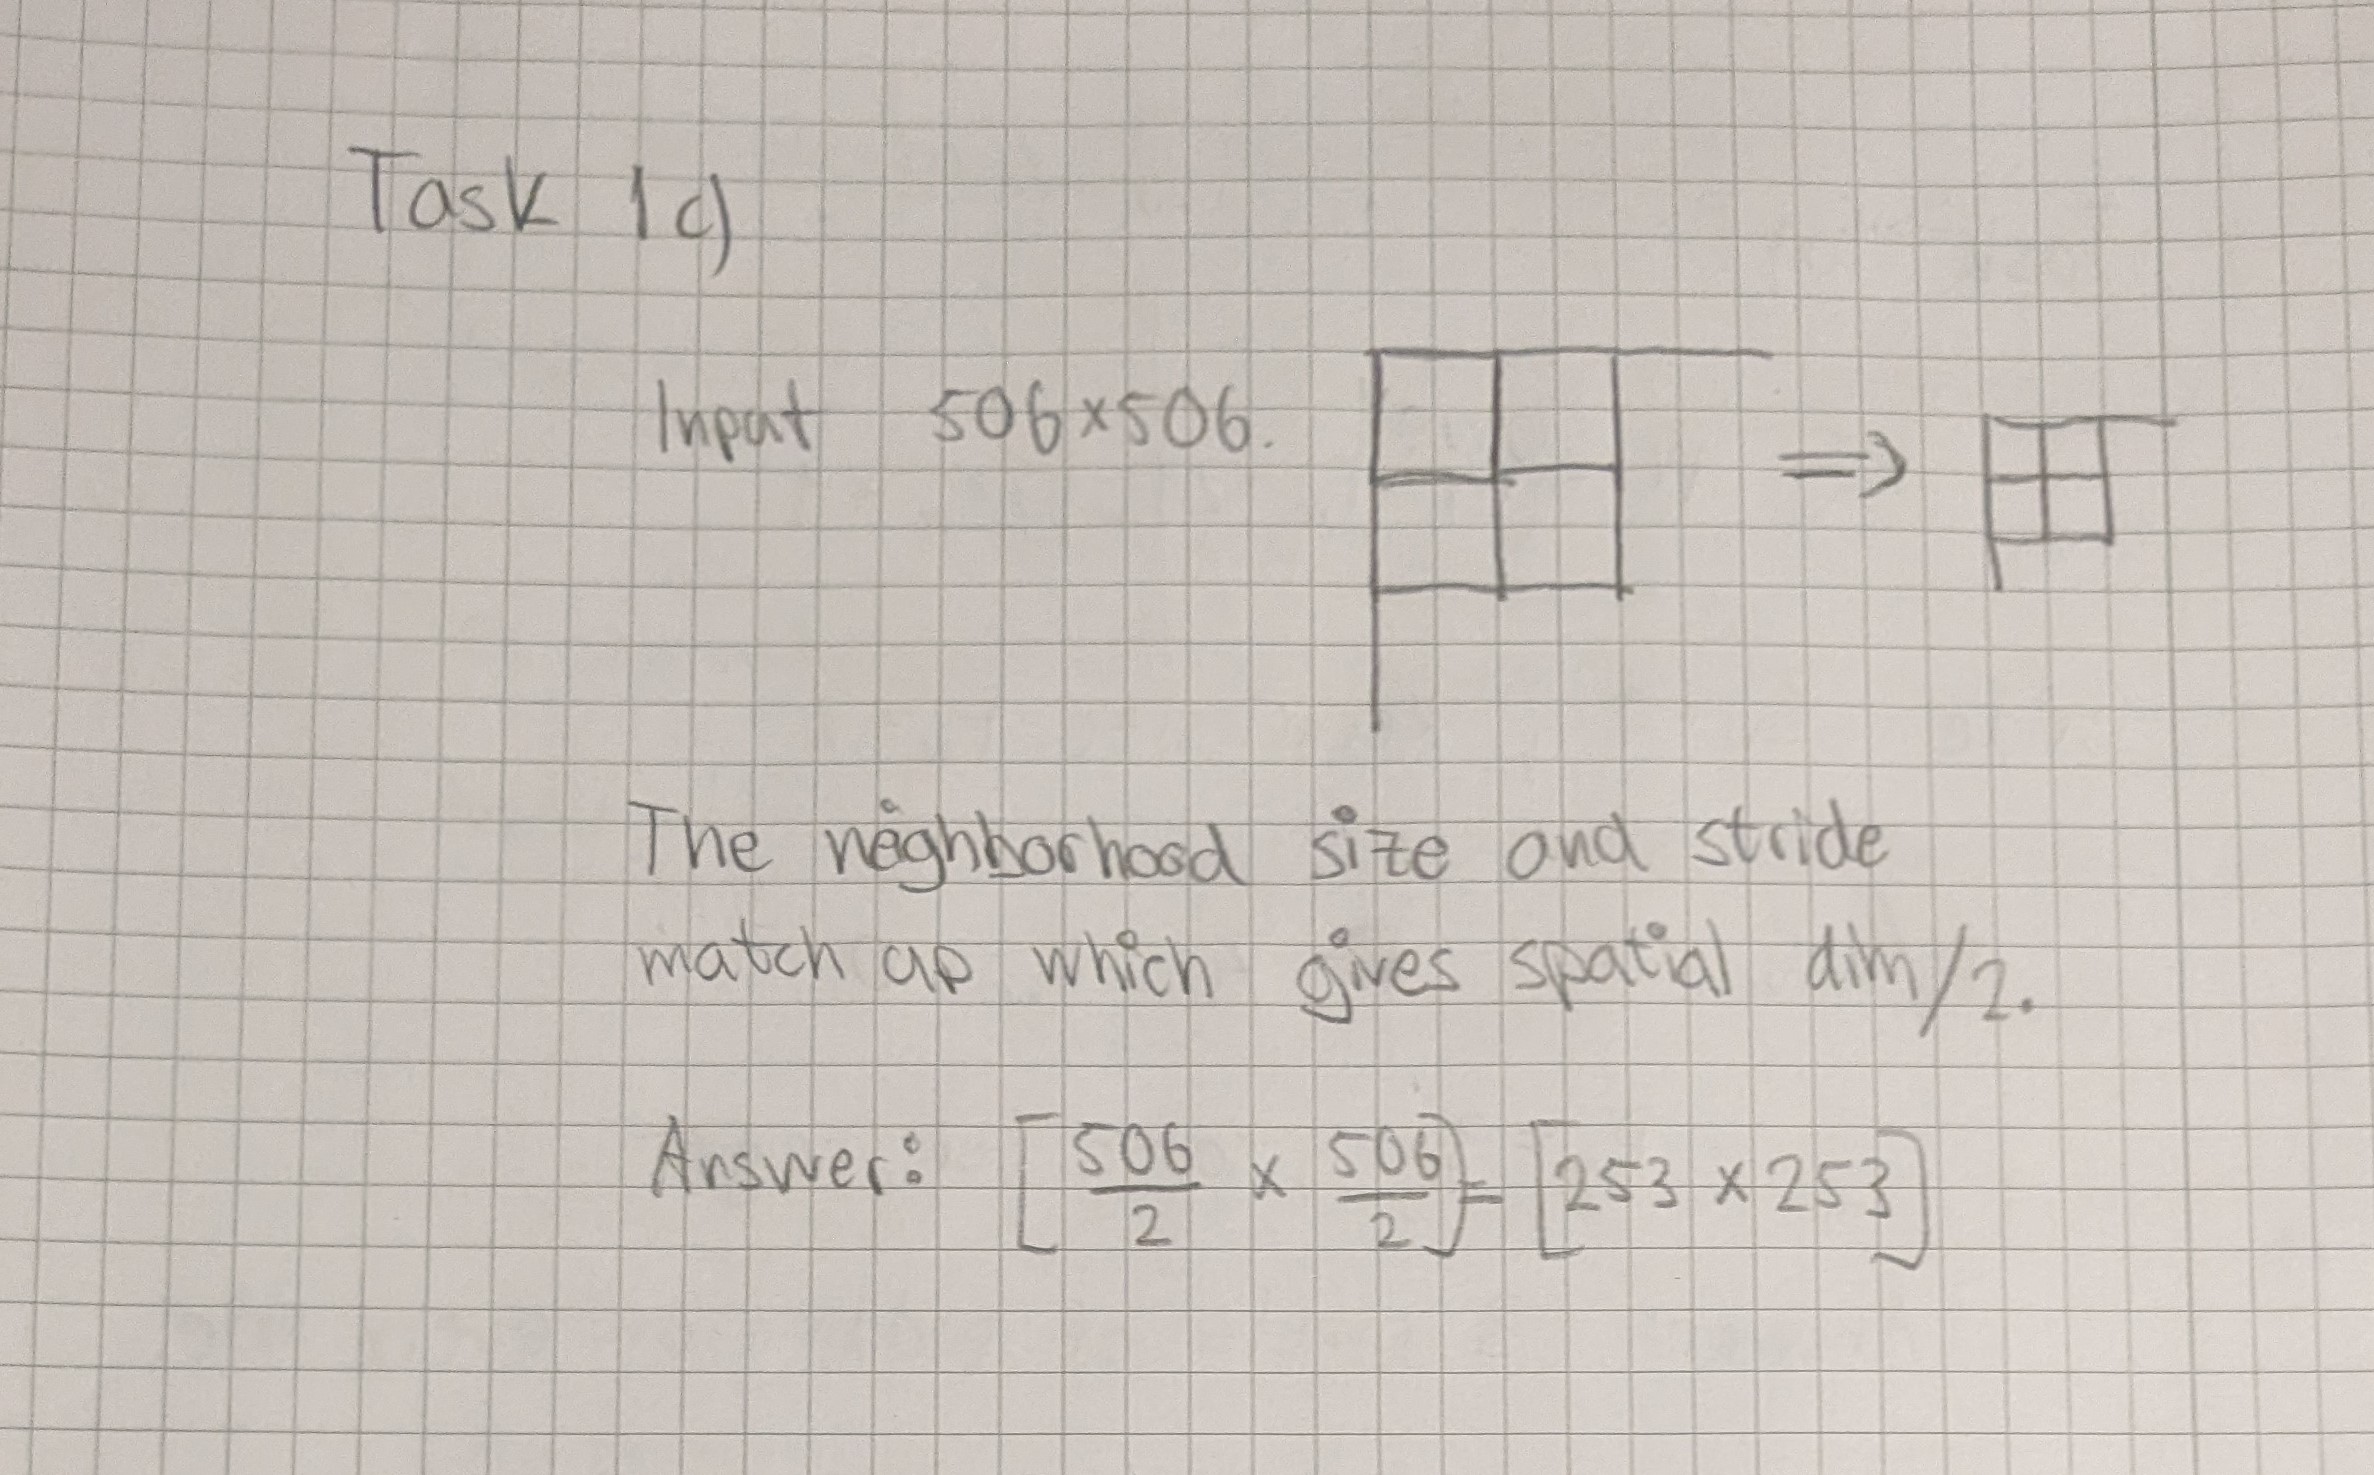 Task 1c)
Input 506×506.
The neighborhood size and stride
match up which gives spatial dim/2.
Answer: [506/2 × 506/2] = [253 × 253]